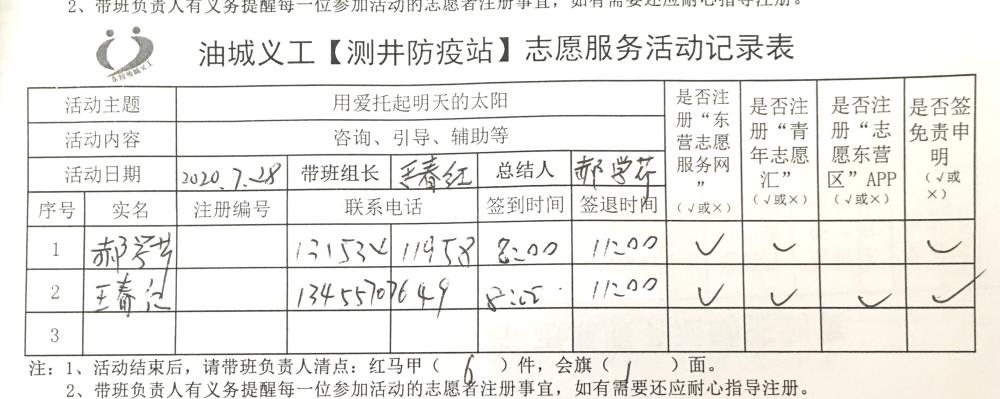 2、带班负责人有义务提醒每一位参加活动的志愿者注册事宜，如有需要还应耐心指导注册。
油城义工【测井防疫站】志愿服务活动记录表
活动主题 用爱托起明天的太阳 是否注册“东营志愿服务网”（√或×） 是否注册“青年志愿汇”（√或×） 是否注册“志愿东营区”APP（√或×） 是否签免责申明（√或×）
活动内容 咨询、引导、辅助等
活动日期 2020.7.28 带班组长 王春红 总结人 郝学芹
序号 实名 注册编号 联系电话 签到时间 签退时间
1 郝学芹 11958 8:00 11:00 √ √ √
2 王春红 13455707649 11:00 √ √ √ √
3
注：1、活动结束后，请带班负责人清点：红马甲（ 6 ）件，会旗（ 1 ）面。
2、带班负责人有义务提醒每一位参加活动的志愿者注册事宜，如有需要还应耐心指导注册。